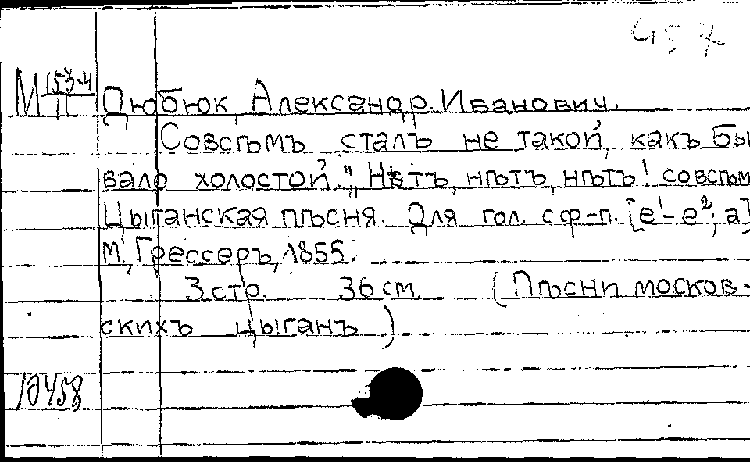 М 153-4
П
Дюбюк, Александр Иванович.
Совсѣмъ сталъ не такой, какъ бы
вало холостой. „Нѣтъ, нѣтъ, нѣтъ! совсѣм
Цыганская пѣсня. Для гол. с ф-п. [e¹-e²; a]
М, Грессеръ, 1855.
3 стр. 36 см (Пѣсни москов-
скихъ цыганъ)
10458